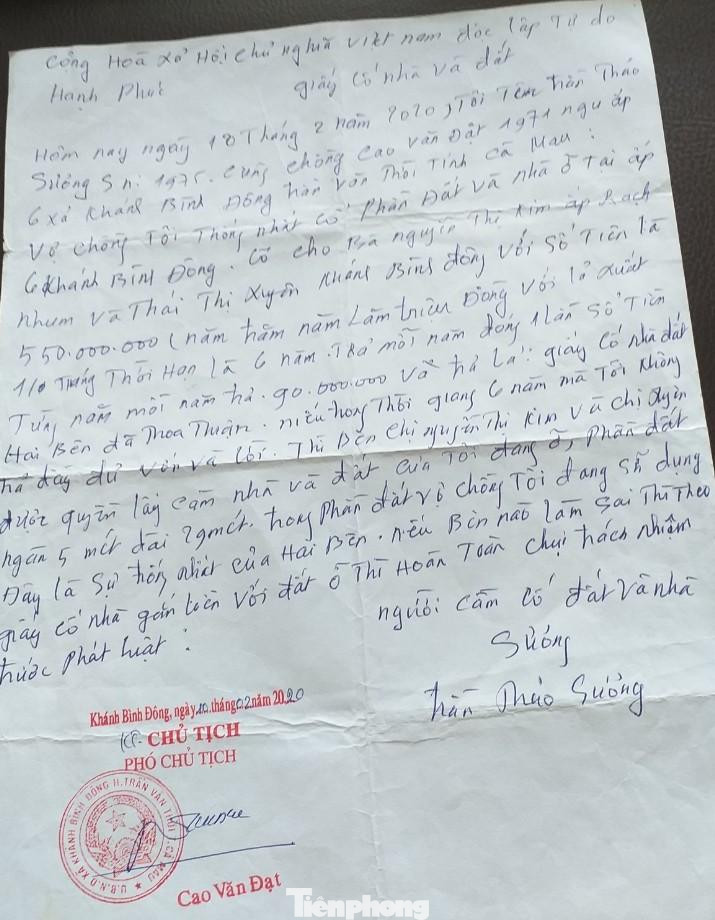 Cộng Hoà xả Hội chủ nghĩa việt nam độc lập Tự do
Hạnh Phúc
giấy Cố nhà và đất
Hôm nay ngày 18 Tháng 2 năm 2020, Tôi Tên trần Thảo
Sương S n: 1975. Cùng chồng Cao văn Đạt 1971 ngụ ấp
6 xả Khánh Bình Đông trần văn Thời Tỉnh Cà Mau:
Vợ chồng Tôi Thống nhất Cố Phần Đất và nhà ở Tại ấp
6 Khánh Bình Đông. Cố cho Bà nguyễn Thị Kim ấp Rạch
nhum và Thái Thị Xuyên Khánh Bình đông với số Tiền là
550.000.000 (năm trăm năm Lăm triệu Đồng với lả xuất
1/0 Tháng Thời Hạn là 6 năm. Trả mỗi năm đóng 1 lần Số Tiền
Từng năm mỗi năm trả. 90.000.000 và trả lại giấy Cố nhà đất
Hai Bên đã Thoa Thuận. niếu trong Thời giang 6 năm mà Tôi Không
trả đầy đủ vốn và lời. Thì Bên chị nguyễn Thị Kim và chị Xuyên
được quyền lấy căm nhà và đất của Tôi đang ở, Phần đất
ngan 5 mét dài 29 mét. trong Phần đất vợ chồng Tôi đang sử dung
Đây là Sự thống nhất của Hai Bên. niếu Bên nào làm sai Thì Theo
giấy cố nhà gắn liền với đất ở Thì Hoàn Toàn chịu trách nhiệm
trước Phát luật:
người Cầm Cố đất và nhà
Sương
trần Thảo Sương
Khánh Bình Đông, ngày 20 tháng 02 năm 2020
KT. CHỦ TỊCH
PHÓ CHỦ TỊCH
U.B.N.D XÃ KHÁNH BÌNH ĐÔNG H. TRẦN VĂN THỜI - CÀ MAU
Cao Văn Đạt
Tiênphong